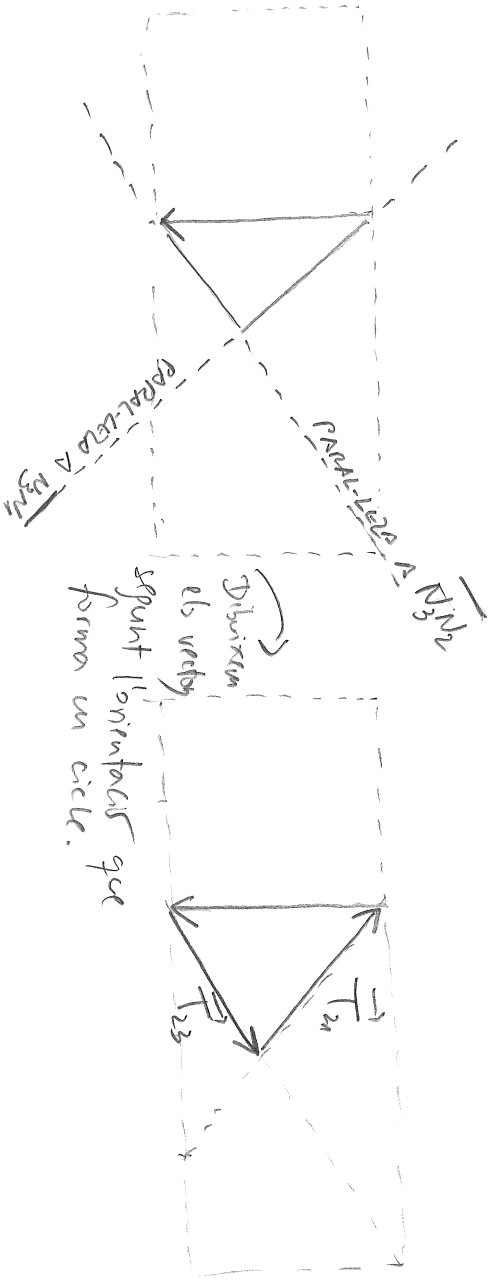 PARAL·LELA A N3N1
PARAL·LELA A N3N2
Dibuixem
els vectors
seguint l'orientació que
forma un cicle.
T23
T21